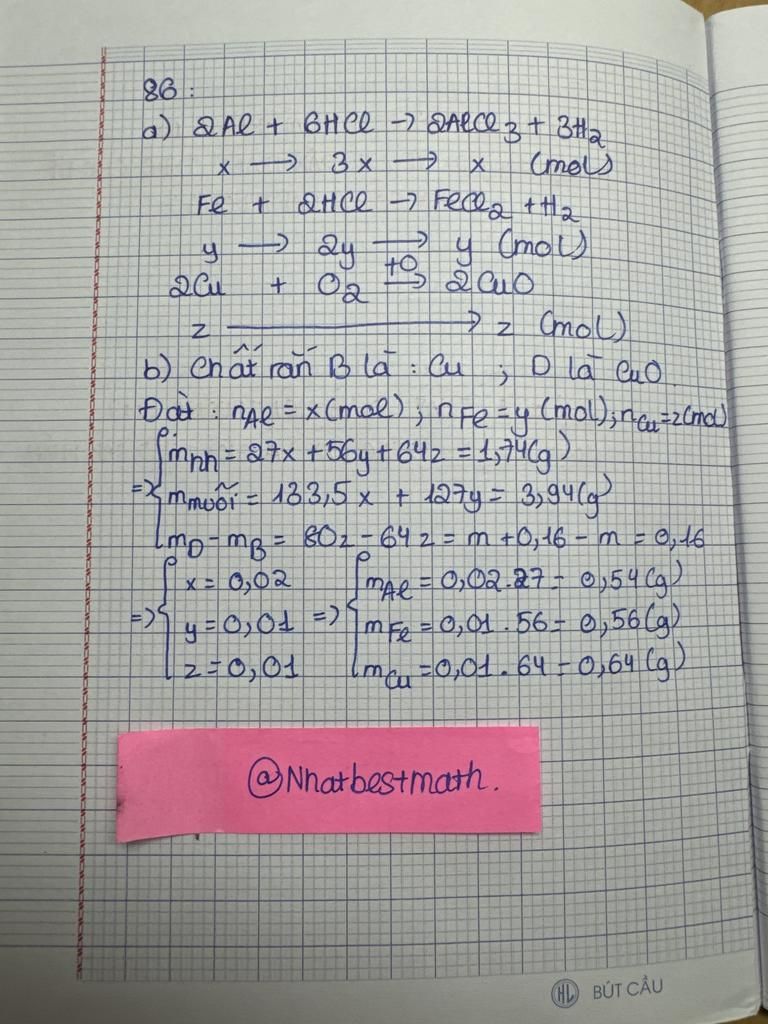 86:
a) 2Al + 6HCl → 2AlCl3 + 3H2
x → 3x → x (mol)
Fe + 2HCl → FeCl2 + H2
y → 2y → y (mol)
+O
2Cu + O2 → 2CuO
z → z (mol)
b) Chất rắn B là : Cu ; D là CuO
Đặt : nAl = x(mol) ; nFe = y (mol) ; nCu = z (mol)
mhh = 27x + 56y + 64z = 1,74(g)
=> mmuối = 133,5x + 127y = 3,94(g)
mD - mB = 80z - 64z = m + 0,16 - m = 0,16
x = 0,02 mAl = 0,02.27 = 0,54(g)
=> y = 0,01 => mFe = 0,01 . 56 = 0,56(g)
z = 0,01 mCu = 0,01 . 64 = 0,64(g)
@Nhatbestmath.
HL BÚT CẦU